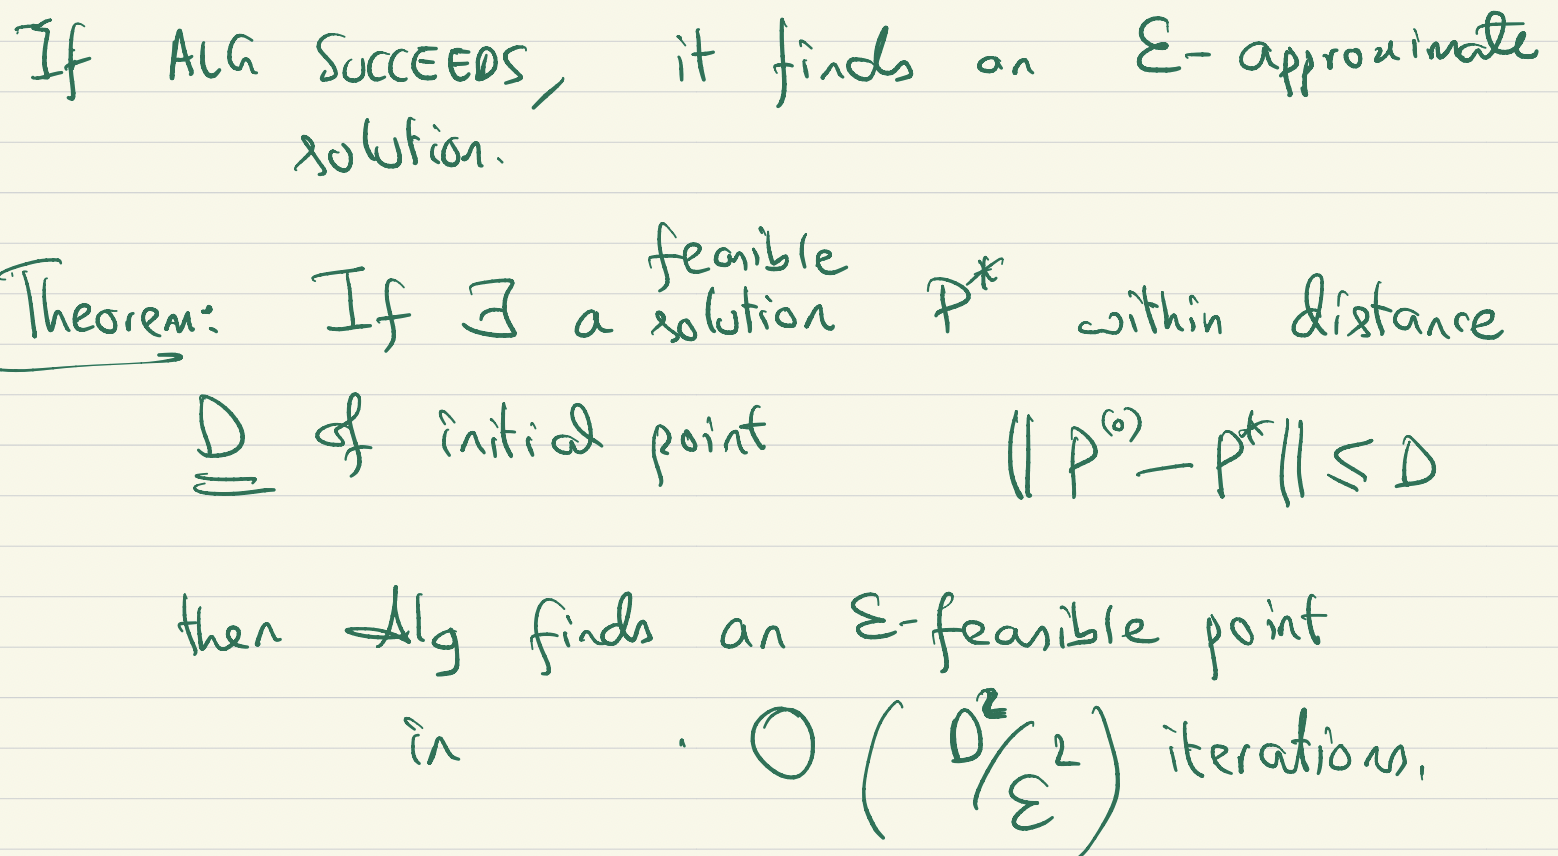 If ALG SUCCEEDS, it finds an ε-approximate
solution.
Theorem: If ∃ a feasible solution P* within distance
D of initial point ||P^(0) - P*|| ≤ D
then Alg finds an ε-feasible point
in . O(D^2/ε^2) iterations.